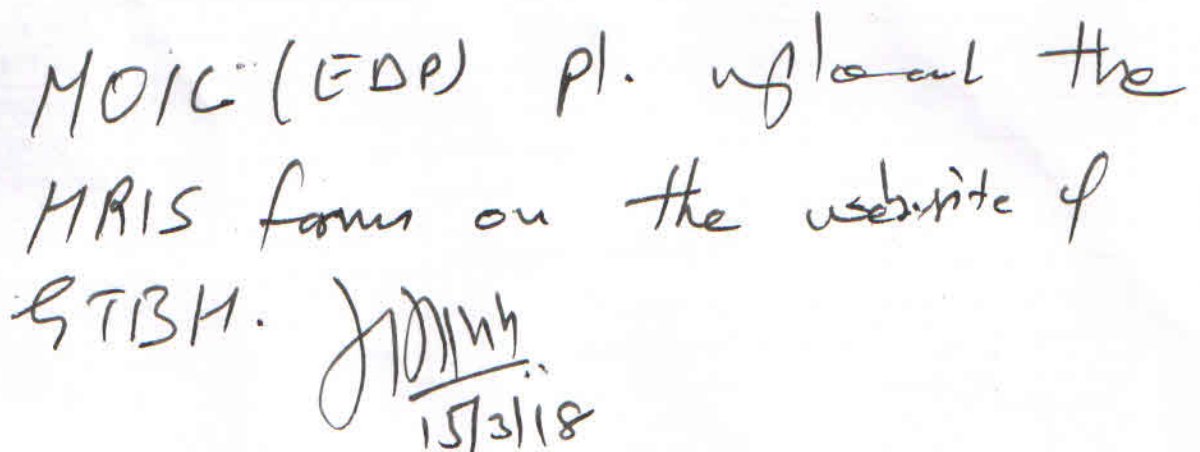 MOIC (EDP) pl. upload the
HRIS forms on the website of
GTBH.
15/3/18